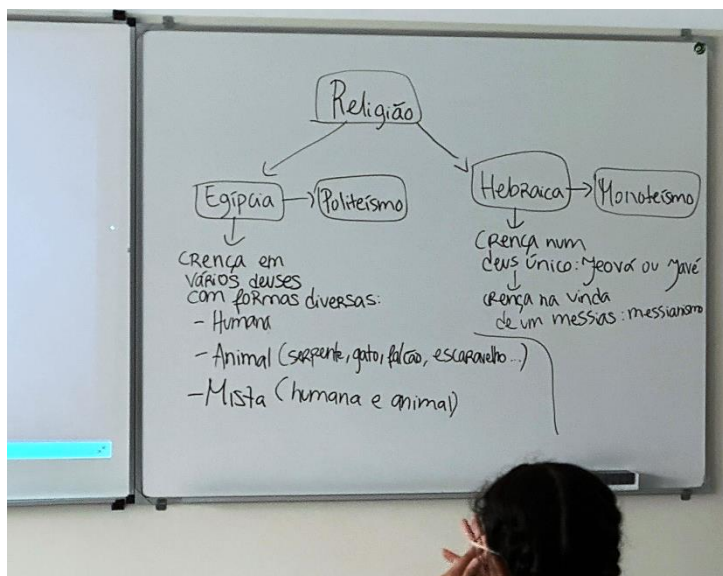 Religião
Egípcia
Politeísmo
Crença em
vários deuses
com formas diversas:
- Humana
- Animal (serpente, gato, falcão, escaravelho...)
- Mista (humana e animal)
Hebraica
Monoteísmo
Crença num
deus único: Jeová ou Javé
crença na vinda
de um messias: messianismo